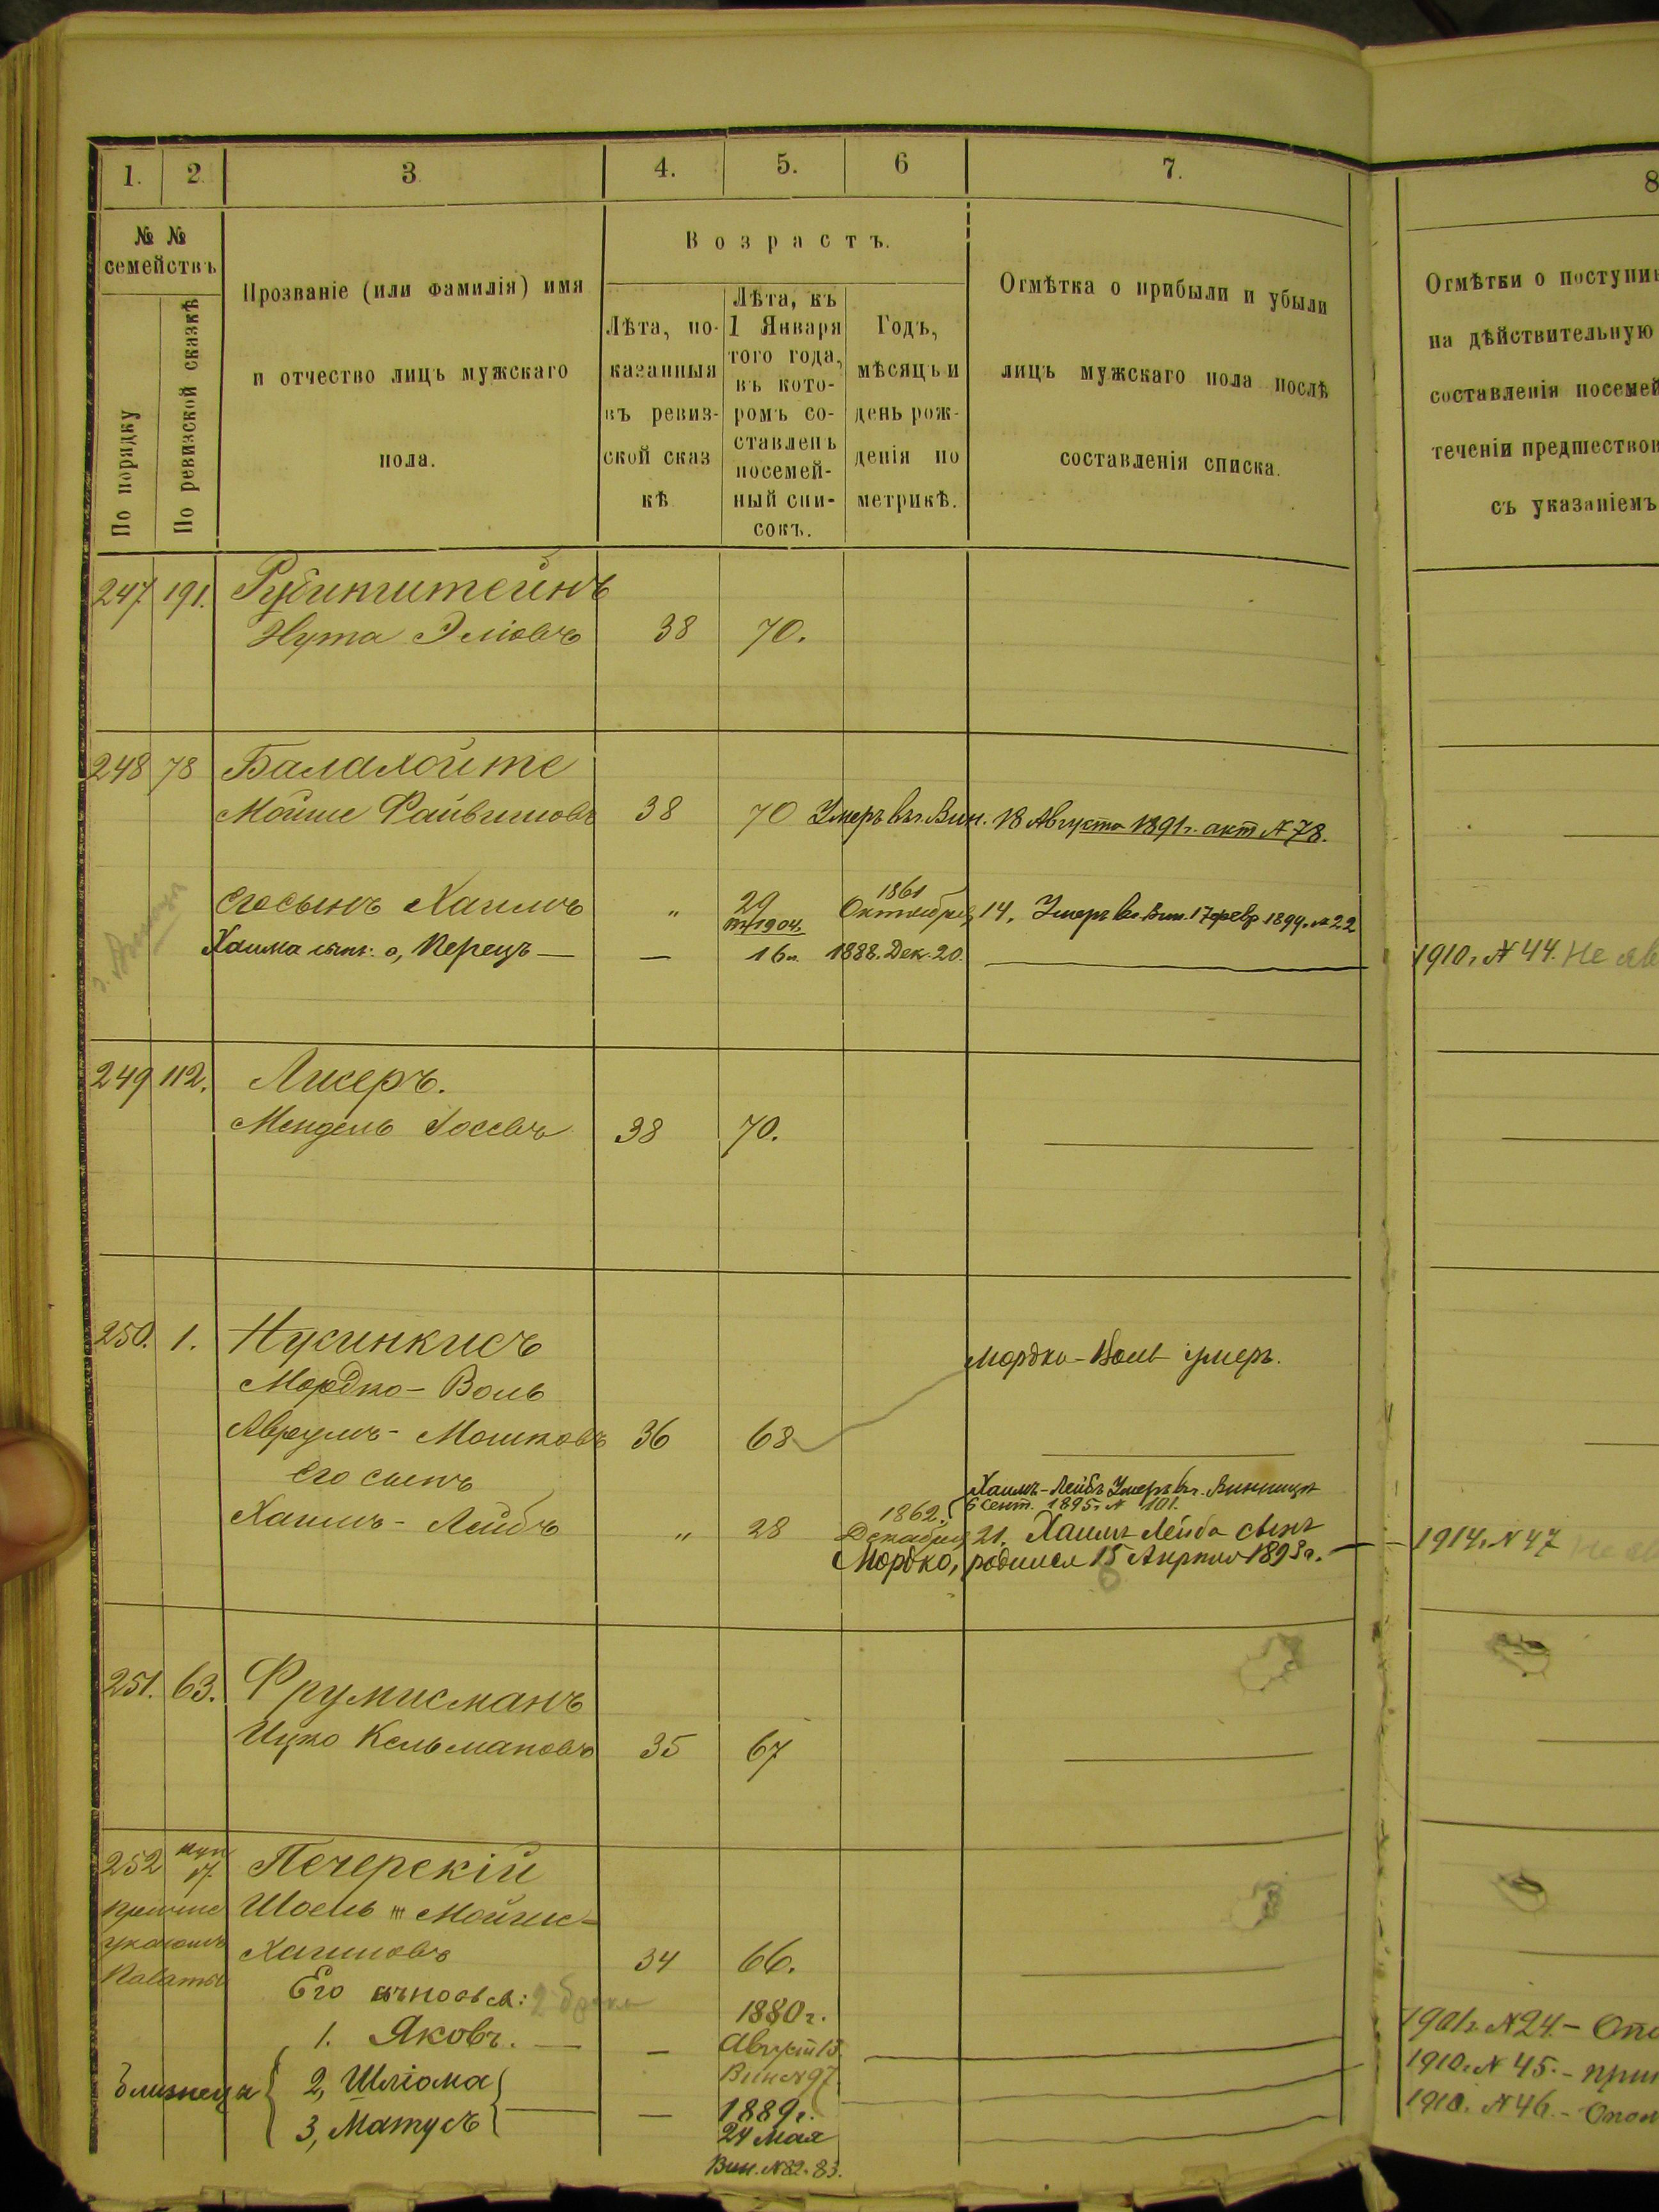 1. 2. 3 4. 5. 6 7. 8
№ №
семействъ
По порядку
По ревизской сказкѣ
Прозваніе (или фамилія) имя
и отчество лицъ мужскаго
пола.
Возрастъ.
Лѣта, по-
казанныя
въ ревиз-
ской сказ
кѣ
Лѣта, къ
1 Января
того года,
въ кото-
ромъ со-
ставленъ
посемей-
ный спи-
сокъ.
Годъ,
мѣсяцъ и
день рож-
денія по
метрикѣ.
Отмѣтка о прибыли и убыли
лицъ мужскаго пола послѣ
составленія списка.
Отмѣтки о поступи
на дѣйствительную
составленія посемей
теченіи предшество
съ указаніемъ
247 191. Рубинштейнъ
Нута Эліовъ 38 70.
248 78 Балалойте
Мойше Файвишовъ 38 70 Умеръ въ г. Вин. 18 Августа 1891 г. акт № 78.
Его сынъ Хаимъ " 29 1861 Октября 14. Умеръ въ г. Вин. 17 февр 1894. № 22
1904
Хаима сын: а, Перецъ — — 16 л. 1888. Дек. 20. 1910 г. № 44. Не яв
249 112. Лисеръ.
Мендель Іосевъ 38 70.
250. 1. Нусинкисъ
Мордко-Воль Мордко-Воль умеръ.
Аврумъ-Мошковъ 36 68
Его сынъ
Хаимъ-Лейбъ Умеръ въ г. Винницѣ
6 Сент. 1895 г. № 101.
Хаимъ-Лейбъ " 28 1862. Декабря 21. Хаимъ Лейба сынъ
Мордко, родился 15 Апрѣля 1893 г. — 1914 г. № 47 Не яв
251. 63. Фрумисманъ
Ицко Кельмановъ 35 67
252 куп 17. Печерскій
Шоель Мойше-
указомъ Хаимовъ 34 66.
Палаты
Его сыновья: 2 брака
1880 г.
1. Яковъ. — — Август 15. 1901 г. № 24. —
Вин № 97
Близнецы { 2, Шліома 1910 г. № 45. —
3, Матусъ — 1889 г. 1910. № 46. —
24 Мая
Вин. № 82-83.